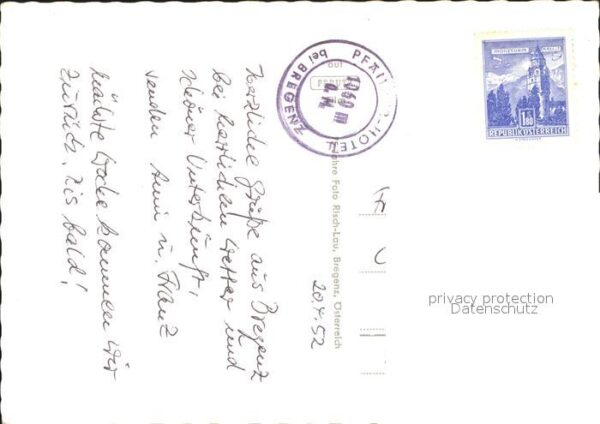 Herzliche Grüße aus Bregenz
bei herrlichem Wetter und
schöner Unterkunft,
senden Anni u. Franz
nächste Woche kommen wir
zurück, bis bald!
20.4.52
PFÄN HOTEL
bei BREGENZ
1060 m
ahre Foto Risch-Lau, Bregenz, Österreich
1.80
REPUBLIK ÖSTERREICH
privacy protection
Datenschutz